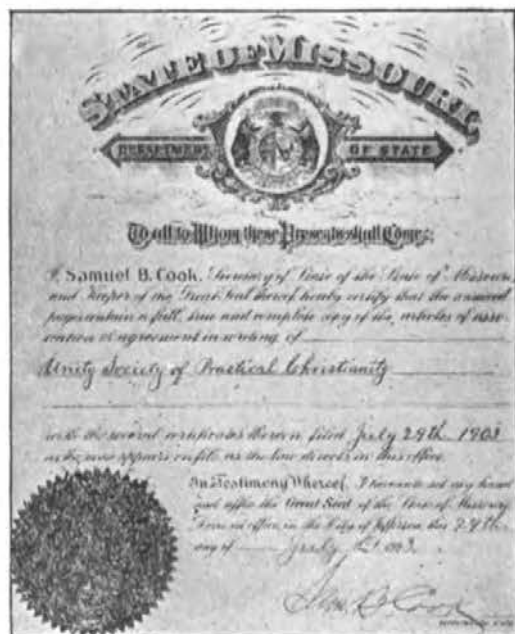 STATE OF MISSOURI,
DEPARTMENT OF STATE
To all to Whom these Presents shall Come:
I, Samuel B. Cook, Secretary of State of the State of Missouri
and Keeper of the Great Seal thereof, hereby certify that the annexed
pages contain a full, true and complete copy of the articles of asso-
ciation or agreement in writing of
Unity Society of Practical Christianity
with the several certificates thereon filed July 29th 1903
as the same appears on file as the law directs in this office.
In Testimony Whereof, I hereunto set my hand
and affix the Great Seal of the State of Missouri
Done at office in the City of Jefferson this 29th
day of July 1903.
Sam. B. Cook